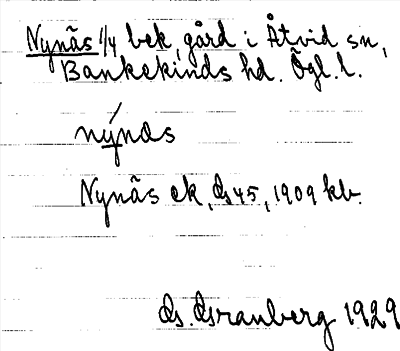 Nynäs 1/4 bek, gård i Åtvid sn,
Bankekinds hd. Ögl. l.
nýnäs
Nynäs ek, ds 45, 1909 kb.
ds. dsranberg 1929